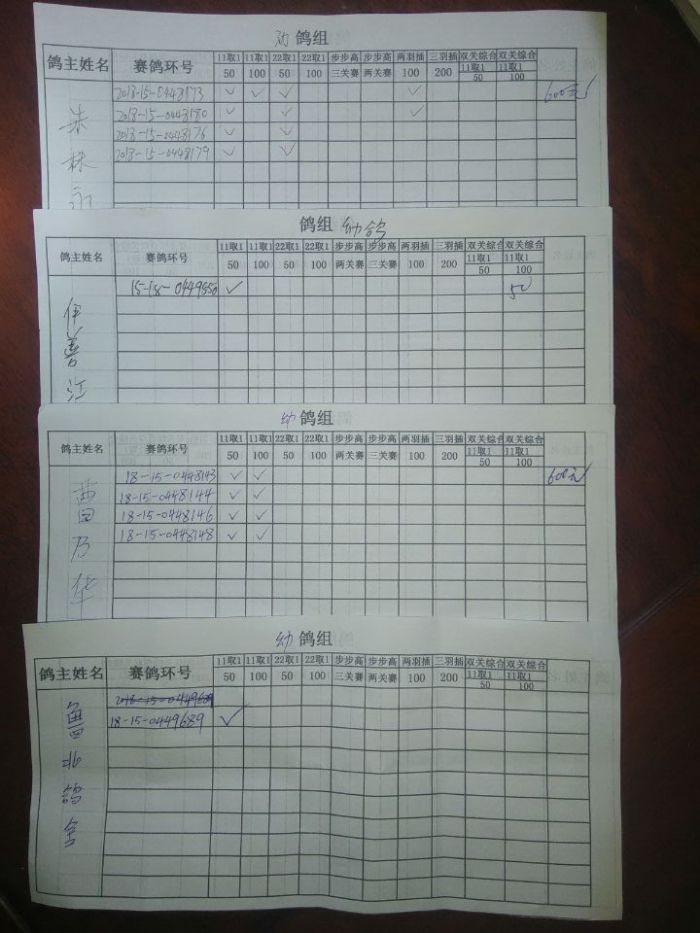 鸽组
鸽主姓名 赛鸽环号 11取1 50 11取1 100 22取1 50 22取1 100 步步高 三关赛 步步高 两关赛 两羽插 100 三羽插 200 双关综合 11取1 50 双关综合 11取1 100
2018-15-0448173 ✓ ✓ ✓ ✓ 600元
2018-15-0448180 ✓ ✓ ✓
2018-15-0448176 ✓ ✓
2018-15-0448179 ✓ ✓
朱林
鸽组 幼鸽
鸽主姓名 赛鸽环号 11取1 50 11取1 100 22取1 50 22取1 100 步步高 两关赛 步步高 三关赛 两羽插 100 三羽插 200 双关综合 11取1 50 双关综合 11取1 100
15-18-0449550 ✓ 50
伊善江
幼鸽组
鸽主姓名 赛鸽环号 11取1 50 11取1 100 22取1 50 22取1 100 步步高 两关赛 步步高 三关赛 两羽插 100 三羽插 200 双关综合 11取1 50 双关综合 11取1 100
18-15-0448143 ✓ ✓ 600元
18-15-0448144 ✓ ✓
18-15-0448146 ✓ ✓
18-15-0448148 ✓ ✓
曹乃华
幼鸽组
鸽主姓名 赛鸽环号 11取1 50 11取1 100 22取1 50 22取1 100 步步高 三关赛 步步高 两关赛 两羽插 100 三羽插 200 双关综合 11取1 50 双关综合 11取1 100
18-15-0449689 ✓
鲁北鸽舍